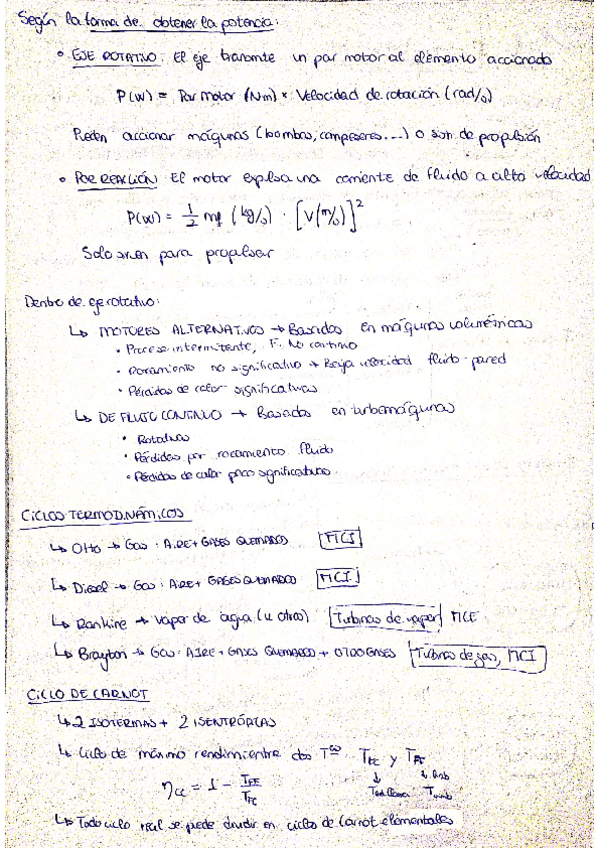 Según la forma de obtener la potencia:
• EJE ROTATIVO: El eje transmite un par motor al elemento accionado
P(W) = Par motor (Nm) * Velocidad de rotación (rad/s)
Pueden accionar máquinas (bombas, compresores...) o son de propulsión
• POR REACCIÓN El motor expulsa una corriente de fluido a alta velocidad
P(W) = 1/2 mf (kg/s) · [V(m/s)]²
Solo sirven para propulsar
Dentro de eje rotativo:
↳ MOTORES ALTERNATIVOS → Basados en máquinas volumétricas
• Proceso intermitente, F. No continuo
• Rozamiento no significativo → Baja velocidad fluido-pared
• Pérdidas de calor significativas
↳ DE FLUJO CONTINUO → Basados en turbomáquinas
• Rotativos
• Pérdidas por rozamiento fluido
• Pérdidas de calor poco significativas
CICLOS TERMODINÁMICOS
↳ Otto → Gas: AIRE + GASES QUEMADOS MCI
↳ Diesel → Gas: AIRE + GASES QUEMADOS MCI
↳ Rankine → Vapor de agua (u otros) Turbinas de vapor MCE
↳ Brayton → GAS: AIRE + GASES QUEMADOS + OTROS GASES Turbinas de gas, MCI
CICLO DE CARNOT
↳ 2 ISOTERMAS + 2 ISENTRÓPICAS
↳ Ciclo de máximo rendim. entre dos Tᵃˢ T_FC y T_FF
η_cc = 1 - T_FF/T_FC
↳ Todo ciclo real se puede dividir en ciclos de Carnot elementales